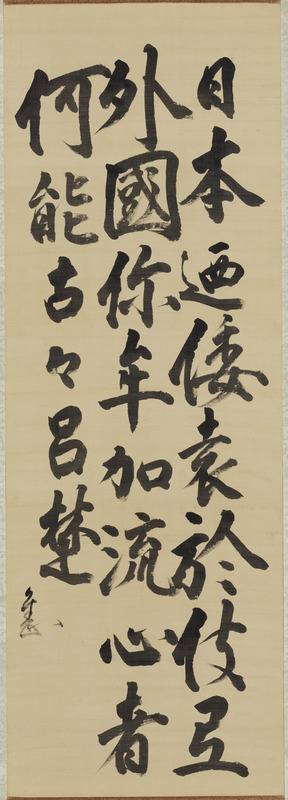 日本迺倭袁於伎弖
外國你牟加流心者
何能古々呂楚